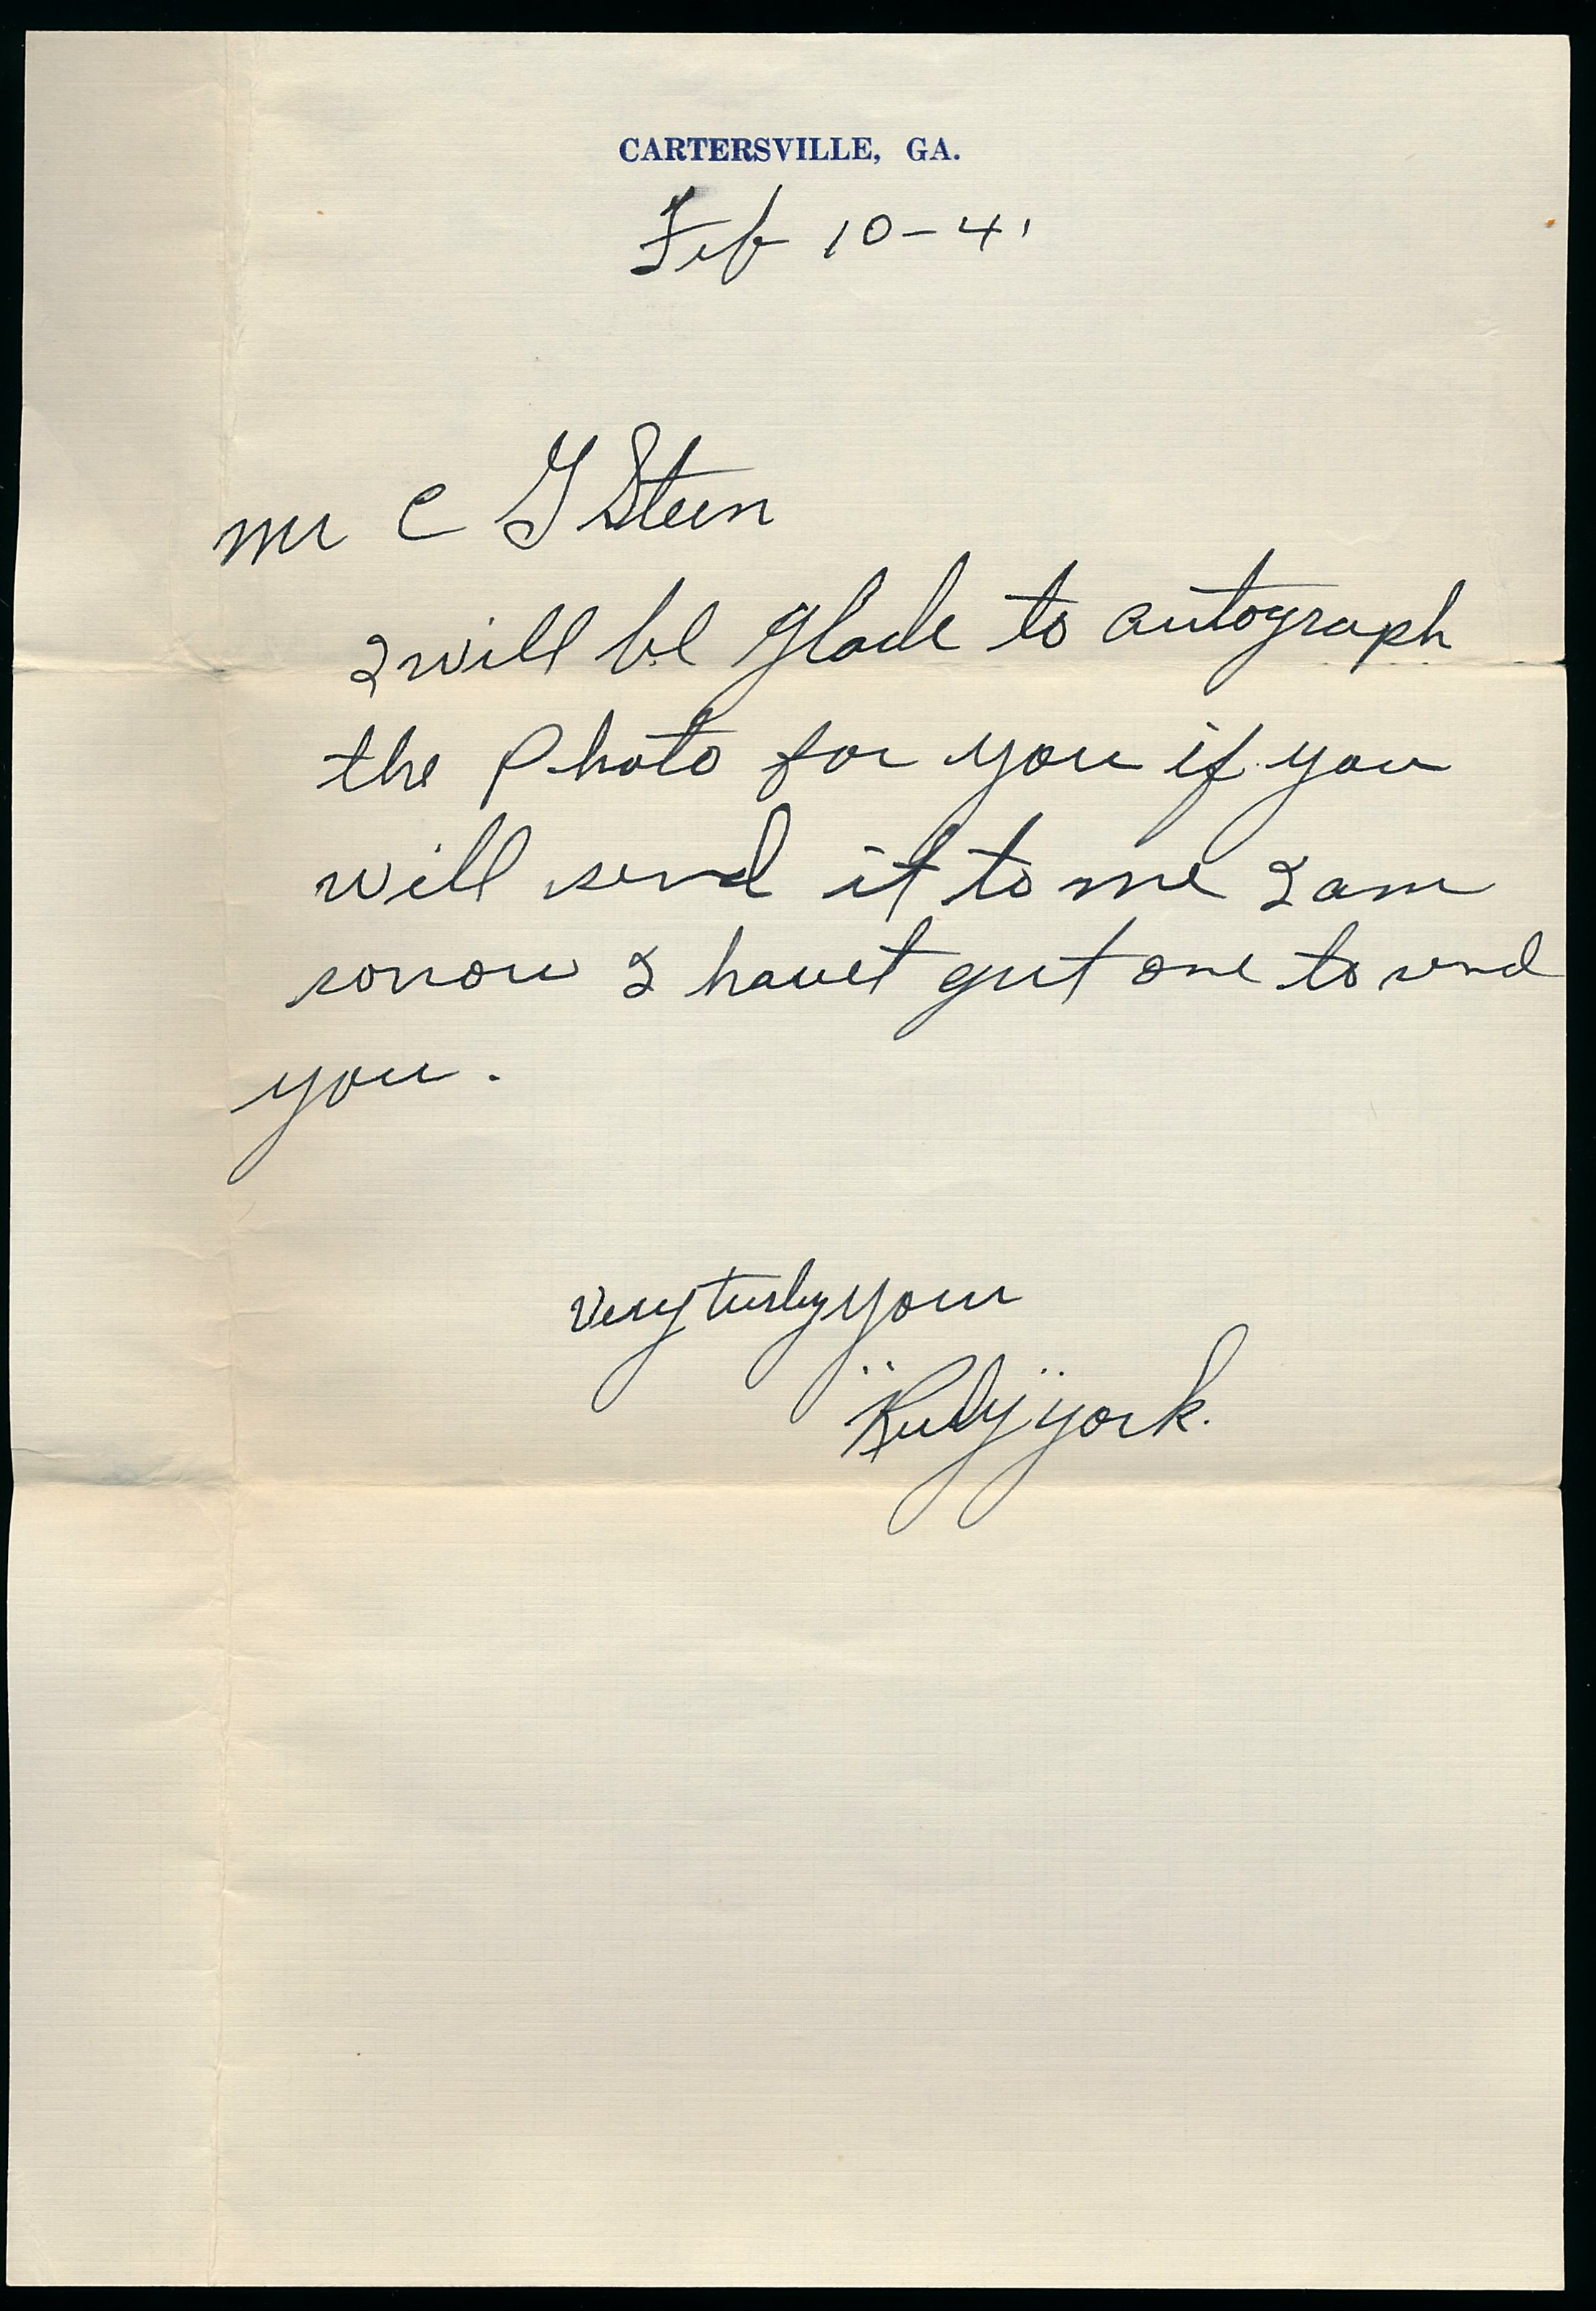 CARTERSVILLE, GA.
Feb 10-41
Mr C G Steen
I will be glade to autograph
the Photo for you if you
will send it to me I am
sorrow I havet got one to send
you.
Very turly your
"Rudy" york.